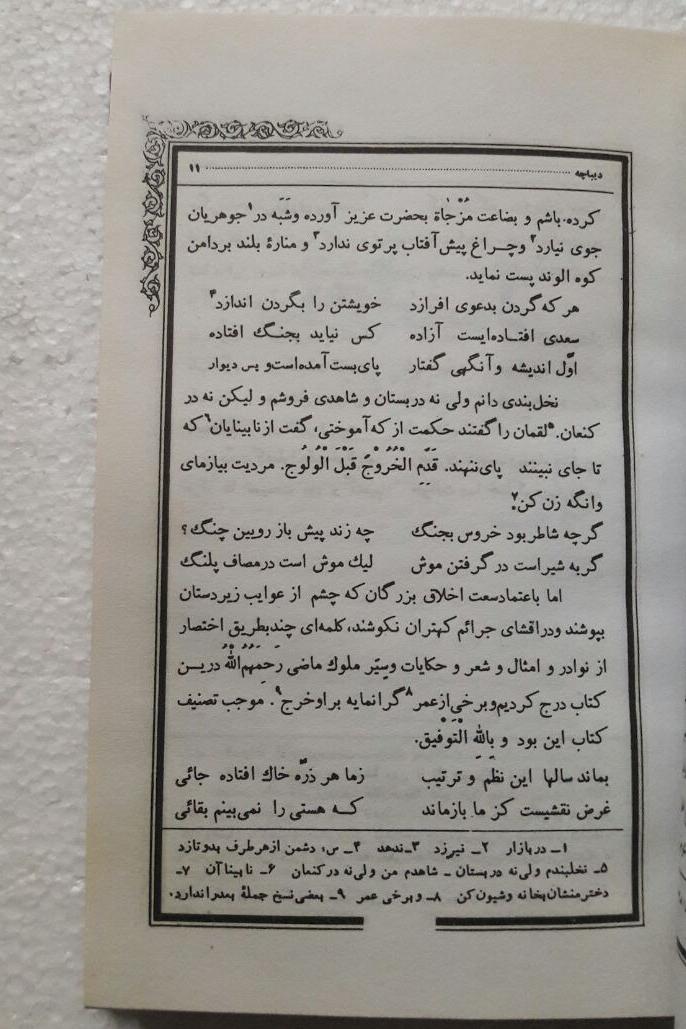 دیباچه ........ ۱۱
کرده باشم و بضاعت مُزْجٰاة بحضرت عزیز آورده وشَبَه در۱ جوهریان
جوی نیارد۲ وچراغ پیش آفتاب پرتوی ندارد۳ و منارهٔ بلند بردامن
کوه الوند پست نماید.
هر که گردن بدعوی افرازد خویشتن را بگردن اندازد۴
سعدی افتاده‌ایست آزاده کس نیاید بجنگ افتاده
اوّل اندیشه وآنگهی گفتار پای‌بست آمده‌است و پس دیوار
نخل‌بندی دانم ولی نه در بستان و شاهدی فروشم و لیکن نه در
کنعان.۵ لقمان را گفتند حکمت از که آموختی، گفت از نابینایان۶ که
تا جای نبینند پای ننهند. قَدِّمِ الْخُرُوْجَ قَبْلَ الْوُلُوجِ. مردیت بیازمای
وانگه زن کن.۷
گرچه شاطر بود خروس بجنگ چه زند پیش باز رویین چنگ؟
گربه شیر است در گرفتن موش لیك موش است در مصاف پلنگ
اما باعتماد سعت اخلاق بزرگان که چشم از عوایب زیردستان
بپوشند و در افشای جرائم کهتران نکوشند، کلمه‌ای چند بطریق اختصار
از نوادر و امثال و شعر و حکایات وسِیَر ملوك ماضی رَحِمَهُمُ‌اللّٰهُ دریـن
کتاب درج کردیم و برخی از عمر۸ گرانمایه بر او خرج۹. موجب تصنیف
کتاب این بود وَ بِاللّٰهِ الْتَوْفیق.
بماند سالها این نظم و ترتیب زما هر ذرّه خاك افتاده جائی
غرض نقشیست کز ما بازماند کـه هستی را نمی‌بینم بقائی
۱ـ در بازار ۲ـ نیرزد ۳ـ ندهد ۴ـ س، دشمن از هر طرف بدو تازد
۵ـ نخلبندم ولی نه در بستان ـ شاهدم من ولی نه در کنعان ۶ـ نابینا آن ۷ـ
دختر منشان بخانه و شیون کن ۸ـ و برخی عمر ۹ـ بعضی نسخ جملهٔ بعد را ندارد.